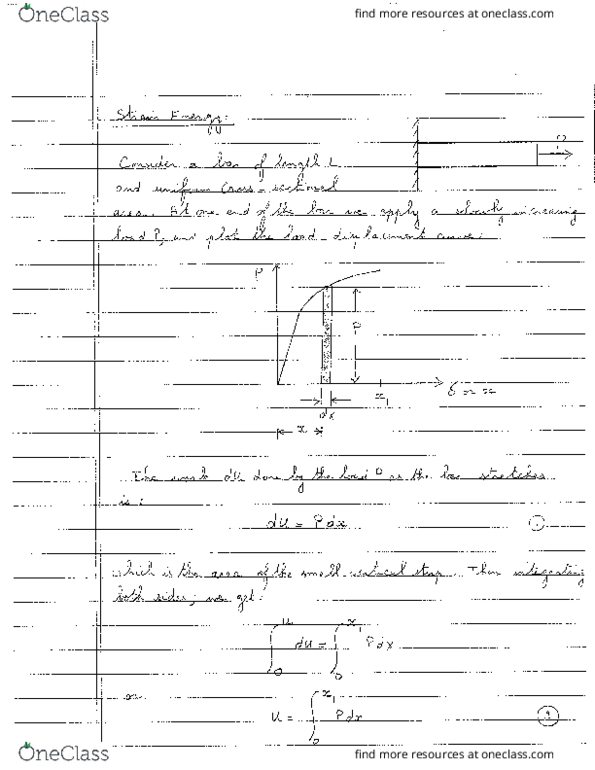 OneClass
find more resources at oneclass.com
Strain Energy:
Consider a bar of length L
P
and uniform Cross-sectional
area. At one end of the bar we apply a slowly increasing
load P, and plot the load-displacement curve:
P
P
x₁
δ or x
dx
x
The work dU done by the load P as the bar stretches
is:
dU = P dx
which is the area of the small vertical strip. Then integrating
both sides, we get:
∫₀ᵁ dU = ∫₀ˣ¹ P dx
or
U = ∫₀ˣ¹ P dx
OneClass
find more resources at oneclass.com